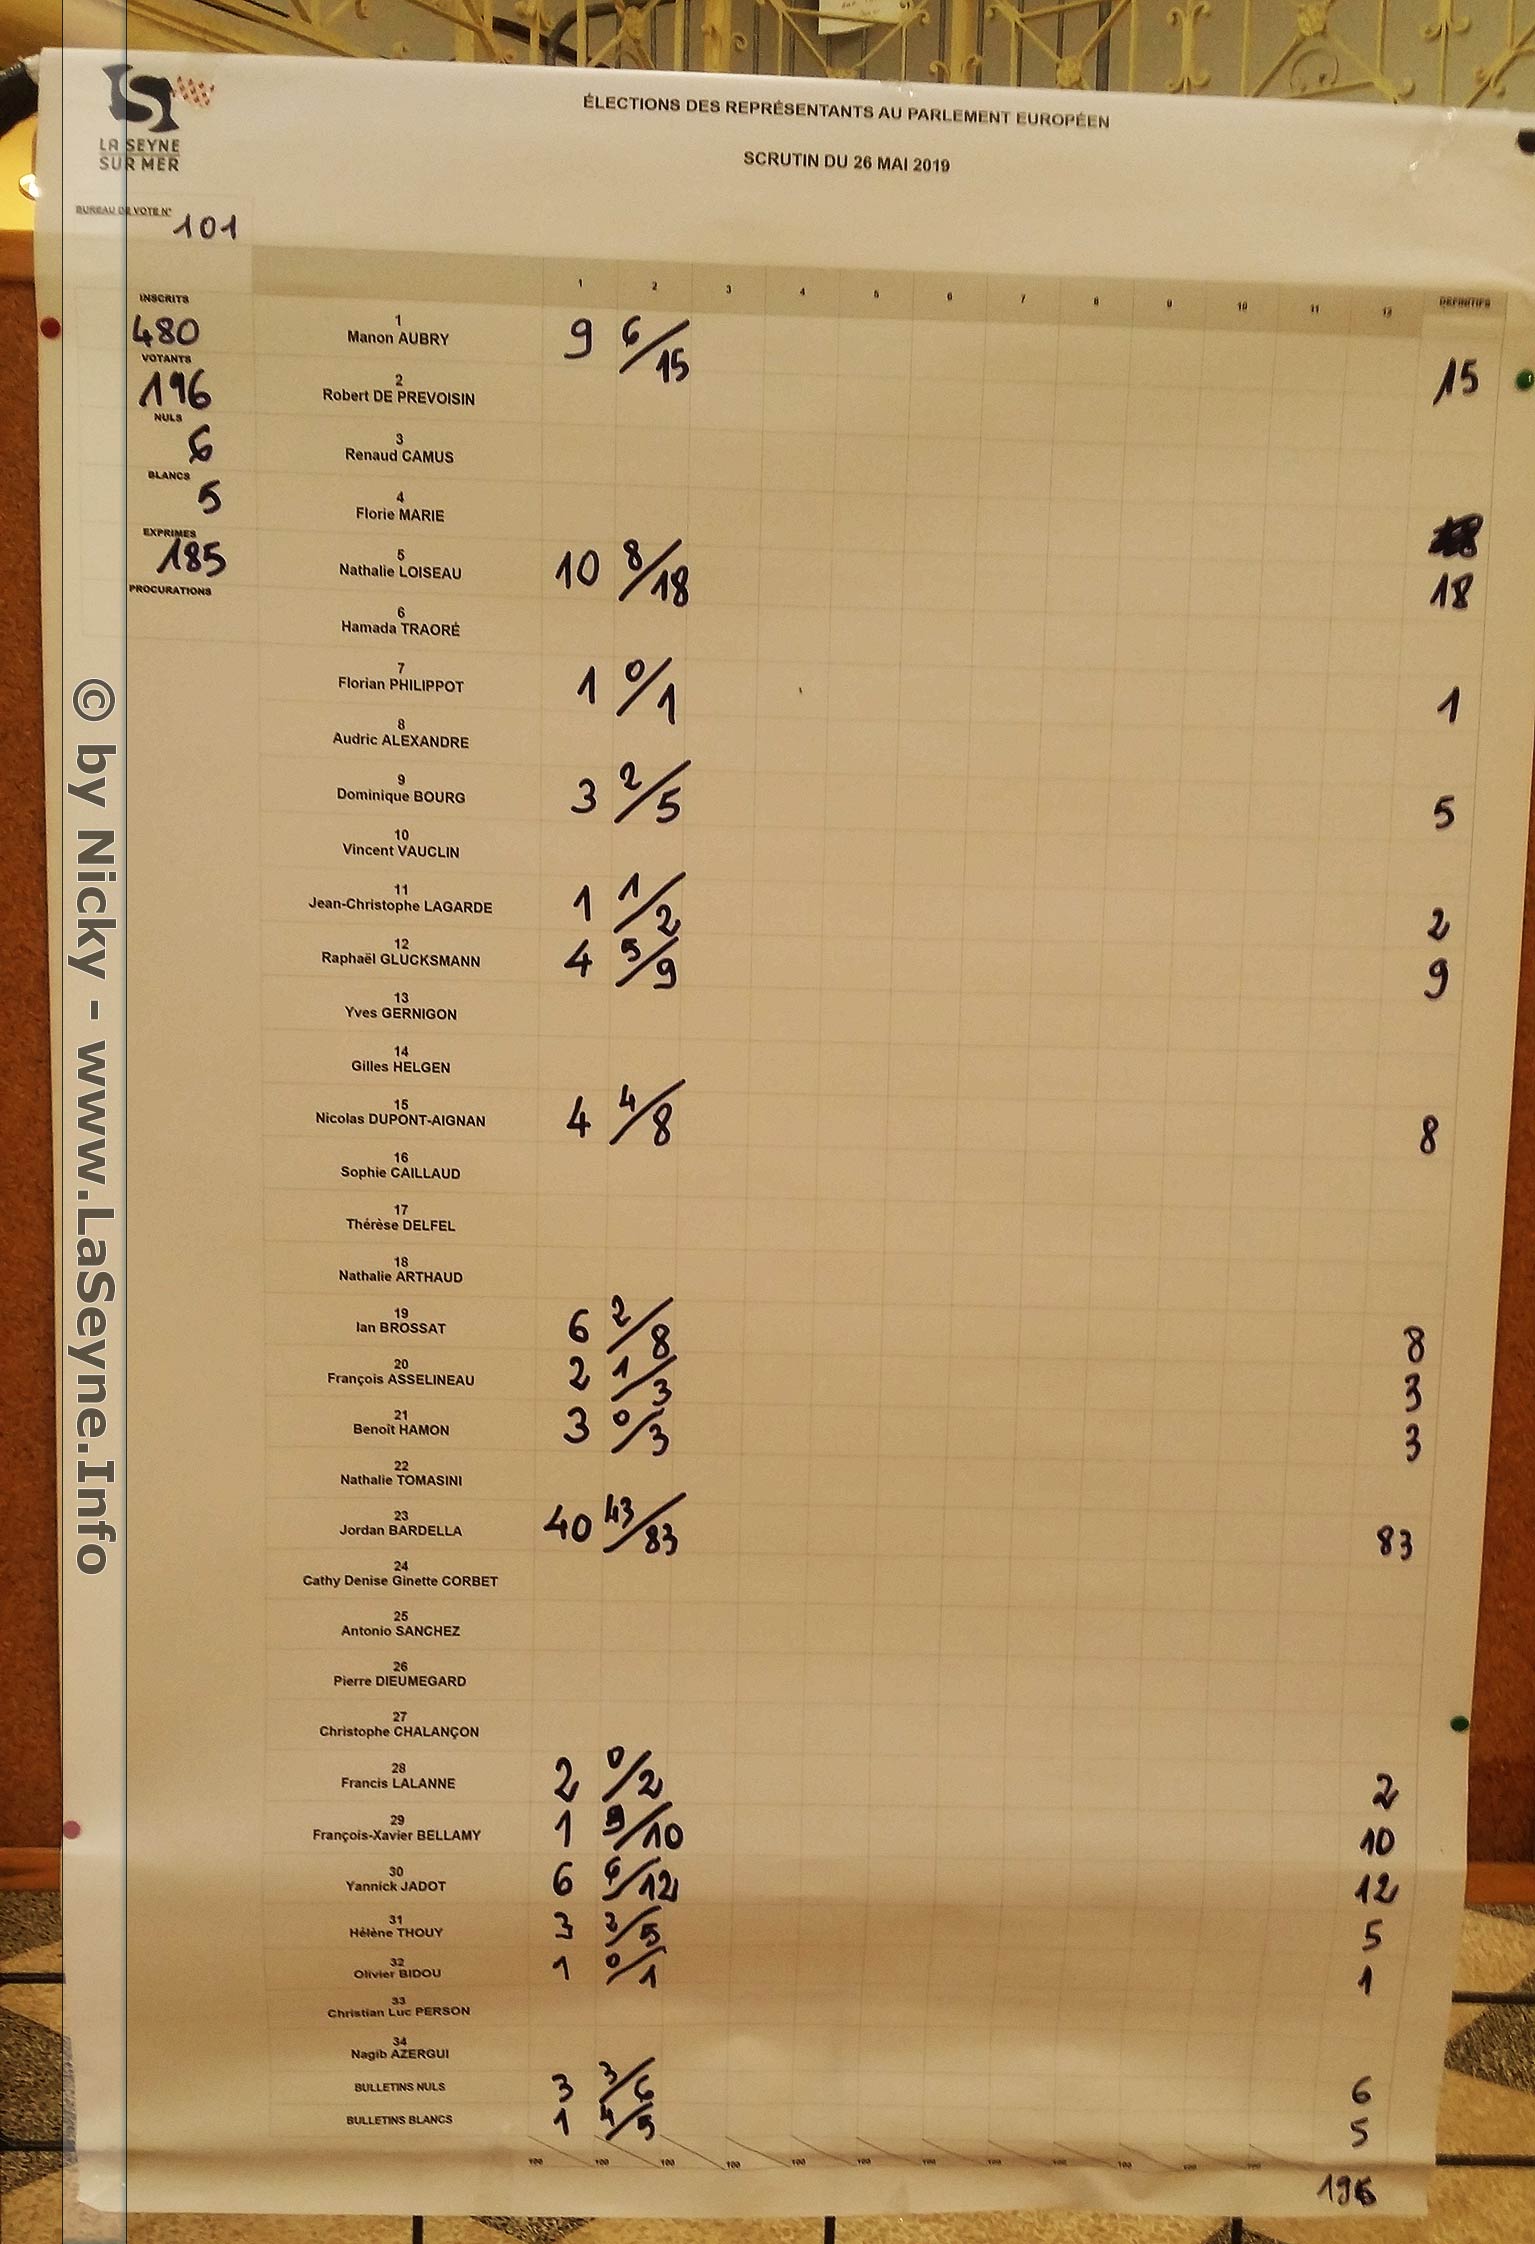 LA SEYNE
SUR MER
ÉLECTIONS DES REPRÉSENTANTS AU PARLEMENT EUROPÉEN
SCRUTIN DU 26 MAI 2019
BUREAU DE VOTE N°
101
1 2 3 4 5 6 7 8 9 10 11 12 DÉFINITIFS
INSCRITS
480
VOTANTS
196
NULS
6
BLANCS
5
EXPRIMES
185
PROCURATIONS
1
Manon AUBRY 9 6/15 15
2
Robert DE PREVOISIN
3
Renaud CAMUS
4
Florie MARIE
5
Nathalie LOISEAU 10 8/18 18
6
Hamada TRAORÉ
7
Florian PHILIPPOT 1 0/1 1
8
Audric ALEXANDRE
9
Dominique BOURG 3 2/5 5
10
Vincent VAUCLIN
11
Jean-Christophe LAGARDE 1 1/2 2
12
Raphaël GLUCKSMANN 4 5/9 9
13
Yves GERNIGON
14
Gilles HELGEN
15
Nicolas DUPONT-AIGNAN 4 4/8 8
16
Sophie CAILLAUD
17
Thérèse DELFEL
18
Nathalie ARTHAUD
19
Ian BROSSAT 6 2/8 8
20
François ASSELINEAU 2 1/3 3
21
Benoît HAMON 3 0/3 3
22
Nathalie TOMASINI
23
Jordan BARDELLA 40 43/83 83
24
Cathy Denise Ginette CORBET
25
Antonio SANCHEZ
26
Pierre DIEUMEGARD
27
Christophe CHALANÇON
28
Francis LALANNE 2 0/2 2
29
François-Xavier BELLAMY 1 9/10 10
30
Yannick JADOT 6 6/12 12
31
Hélène THOUY 3 2/5 5
32
Olivier BIDOU 1 0/1 1
33
Christian Luc PERSON
34
Nagib AZERGUI
BULLETINS NULS 3 3/6 6
BULLETINS BLANCS 1 4/5 5
100 100 100 100 100 100 100 100 100 100 100 100
196
© by Nicky - www.LaSeyne.Info